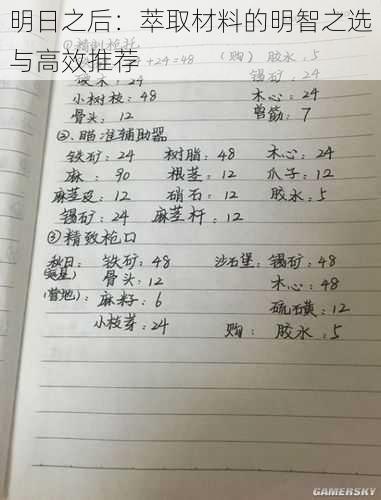 明日之后：萃取材料的明智之选
与高效推荐
①精制枪托
+24=48 （购）胶水：5
硬木：24 锡矿：24
小树枝：48 木心：24
骨头：12 兽筋：7
②.瞄准辅助器
铁矿：24 树脂：48 木心：24
麻：90 根茎：12 爪子：12
麻茎皮：12 硝石：12 胶水：5
锡矿：24 麻茎杆：12
③精致枪口
秋日：铁矿：48 沙石堡：锡矿：48
骨头：12 木心：48
（营地）：麻籽：6 硫磺：12
小枝芽：24 购：胶水：5
GAMERSKY